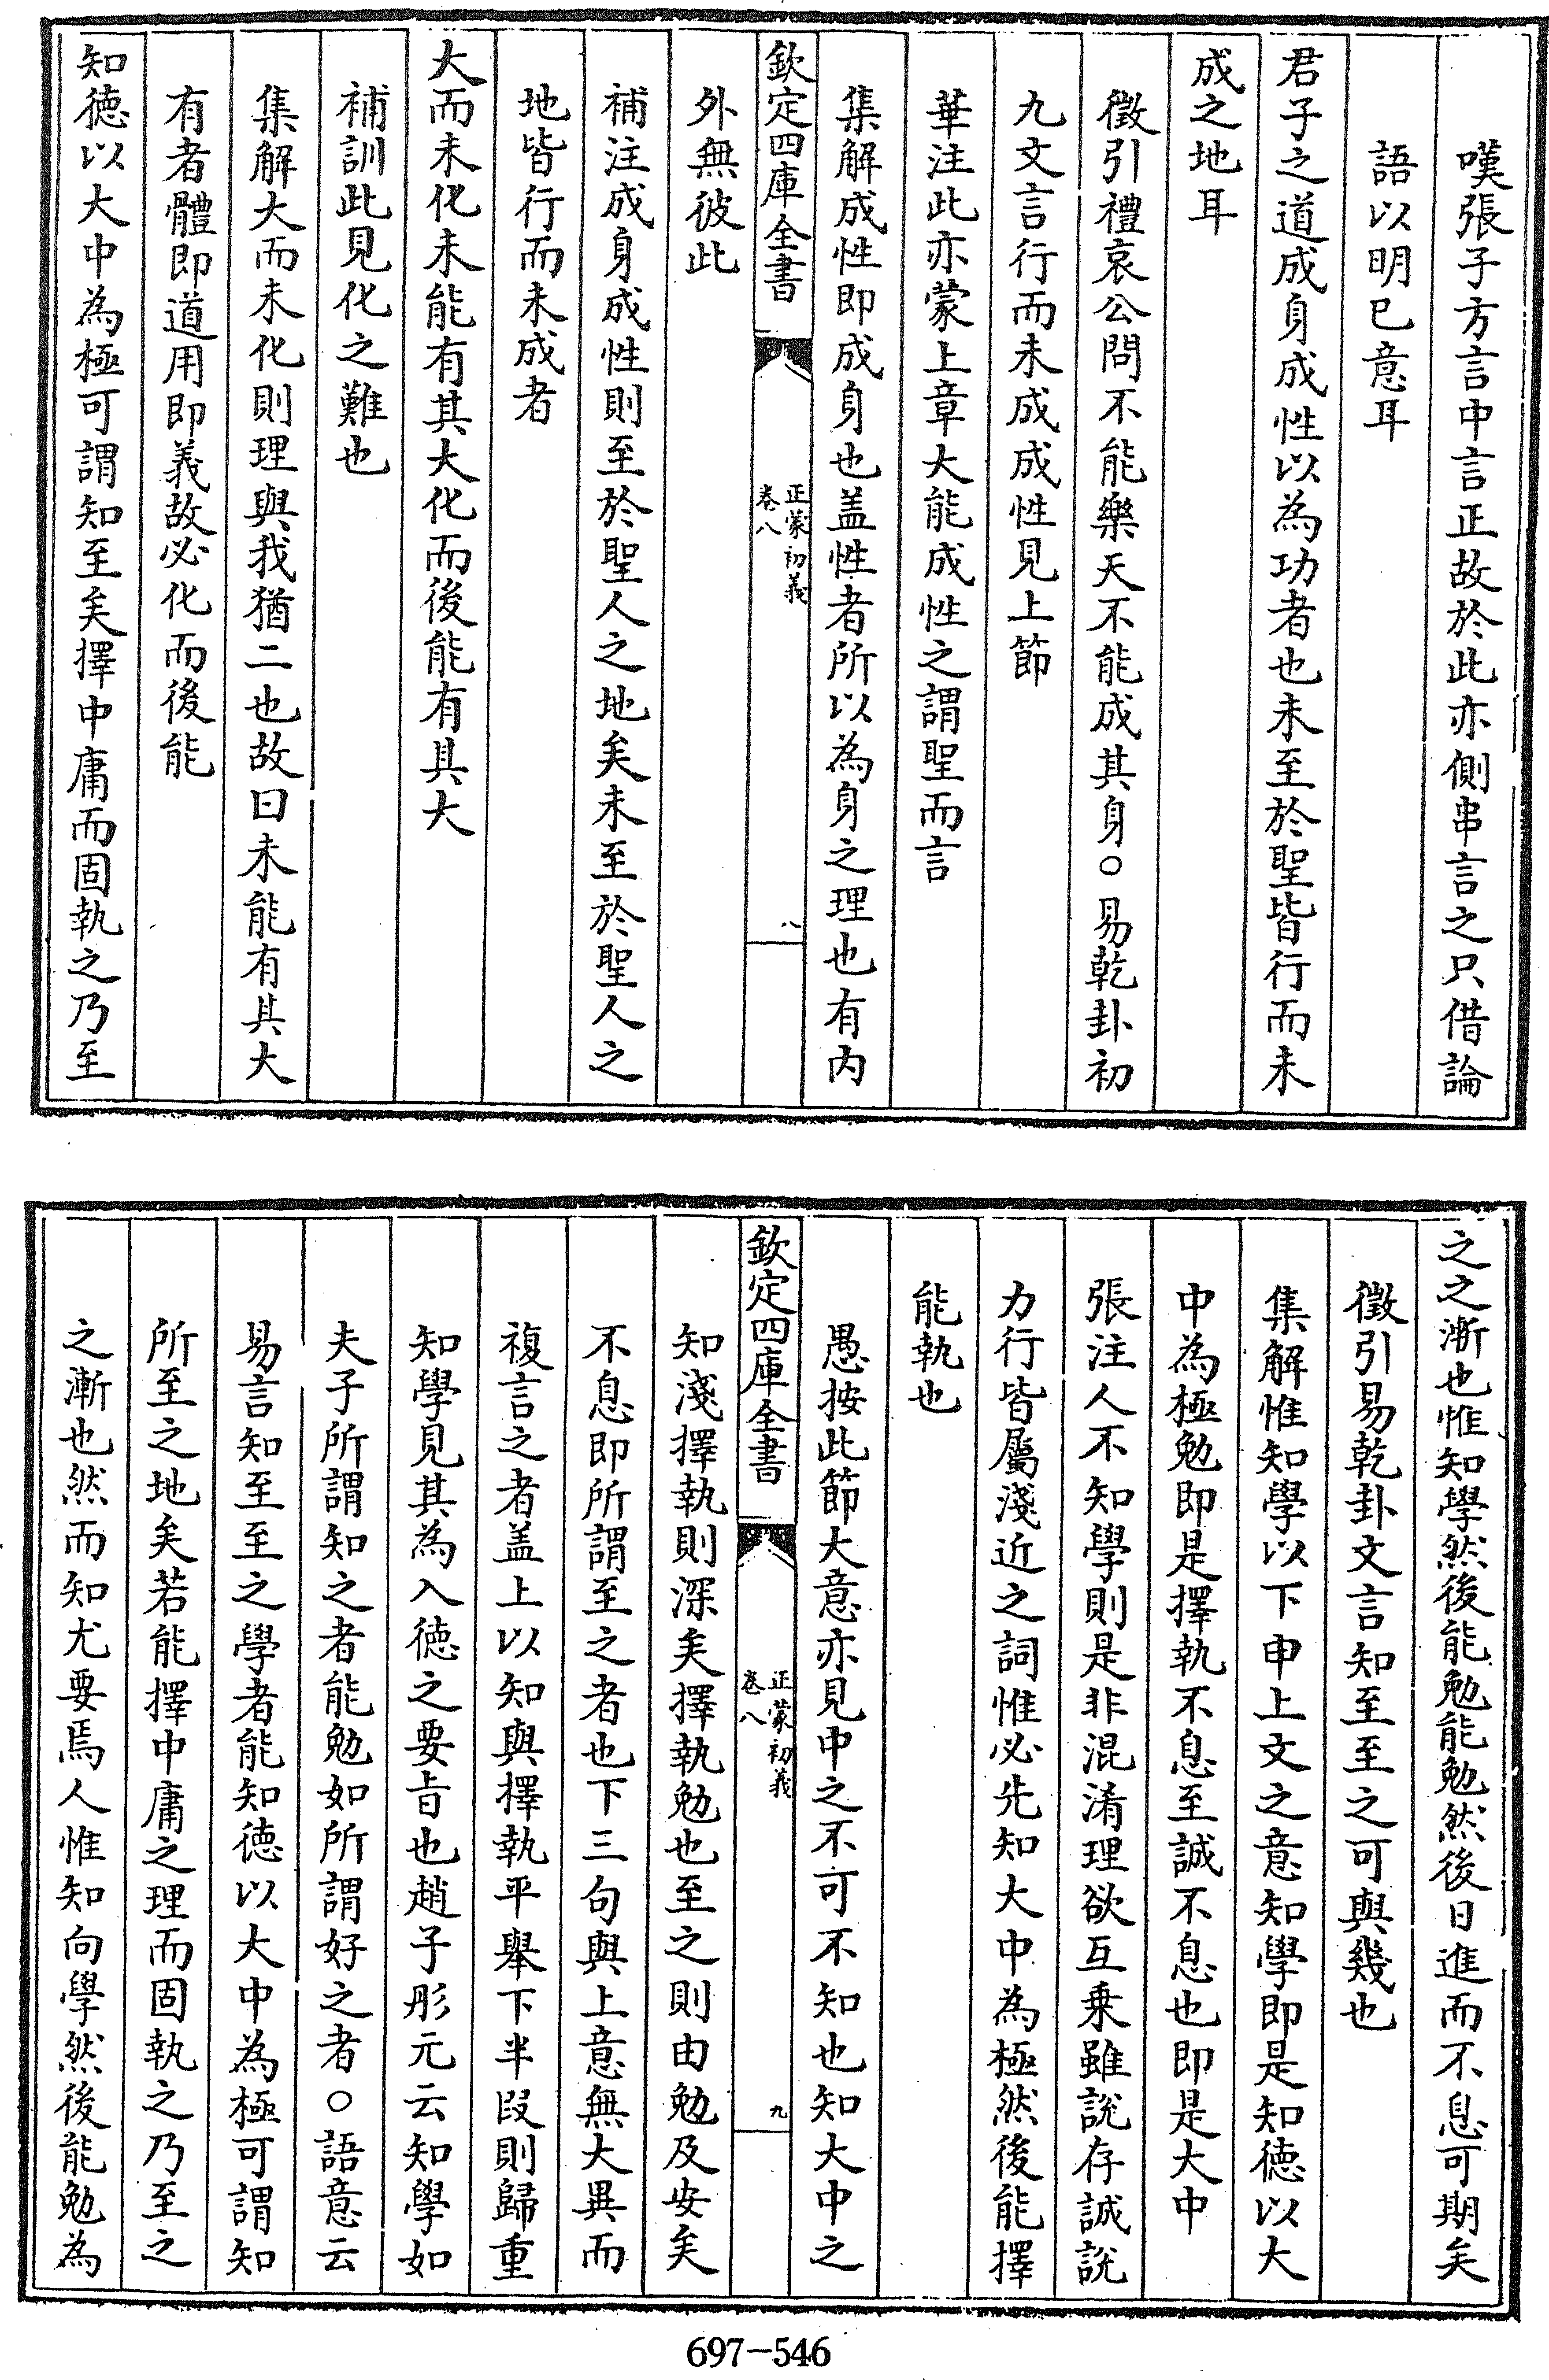 嘆張子方言中言正故於此亦側串言之只借論
語以明已意耳
君子之道成身成性以為功者也未至於聖皆行而未
成之地耳
徵引禮哀公問不能樂天不能成其身○易乾卦初
九文言行而未成成性見上節
華注此亦蒙上章大能成性之謂聖而言
集解成性即成身也盖性者所以為身之理也有内
欽定四庫全書
正蒙初義
卷八
八
外無彼此
補注成身成性則至於聖人之地矣未至於聖人之
地皆行而未成者
大而未化未能有其大化而後能有其大
補訓此見化之難也
集解大而未化則理與我猶二也故曰未能有其大
有者體即道用即義故必化而後能
知徳以大中為極可謂知至矣擇中庸而固執之乃至
之之漸也惟知學然後能勉能勉然後日進而不息可期矣
徵引易乾卦文言知至至之可與幾也
集解惟知學以下申上文之意知學即是知徳以大
中為極勉即是擇執不息至誠不息也即是大中
張注人不知學則是非混淆理欲互乗雖說存誠說
力行皆屬淺近之詞惟必先知大中為極然後能擇
能執也
愚按此節大意亦見中之不可不知也知大中之
欽定四庫全書
正蒙初義
卷八
九
知淺擇執則深矣擇執勉也至之則由勉及安矣
不息即所謂至之者也下三句與上意無大異而
複言之者盖上以知與擇執平舉下半段則歸重
知學見其為入徳之要旨也趙子彤元云知學如
夫子所謂知之者能勉如所謂好之者○語意云
易言知至至之學者能知徳以大中為極可謂知
所至之地矣若能擇中庸之理而固執之乃至之
之漸也然而知尤要焉人惟知向學然後能勉為
697-546